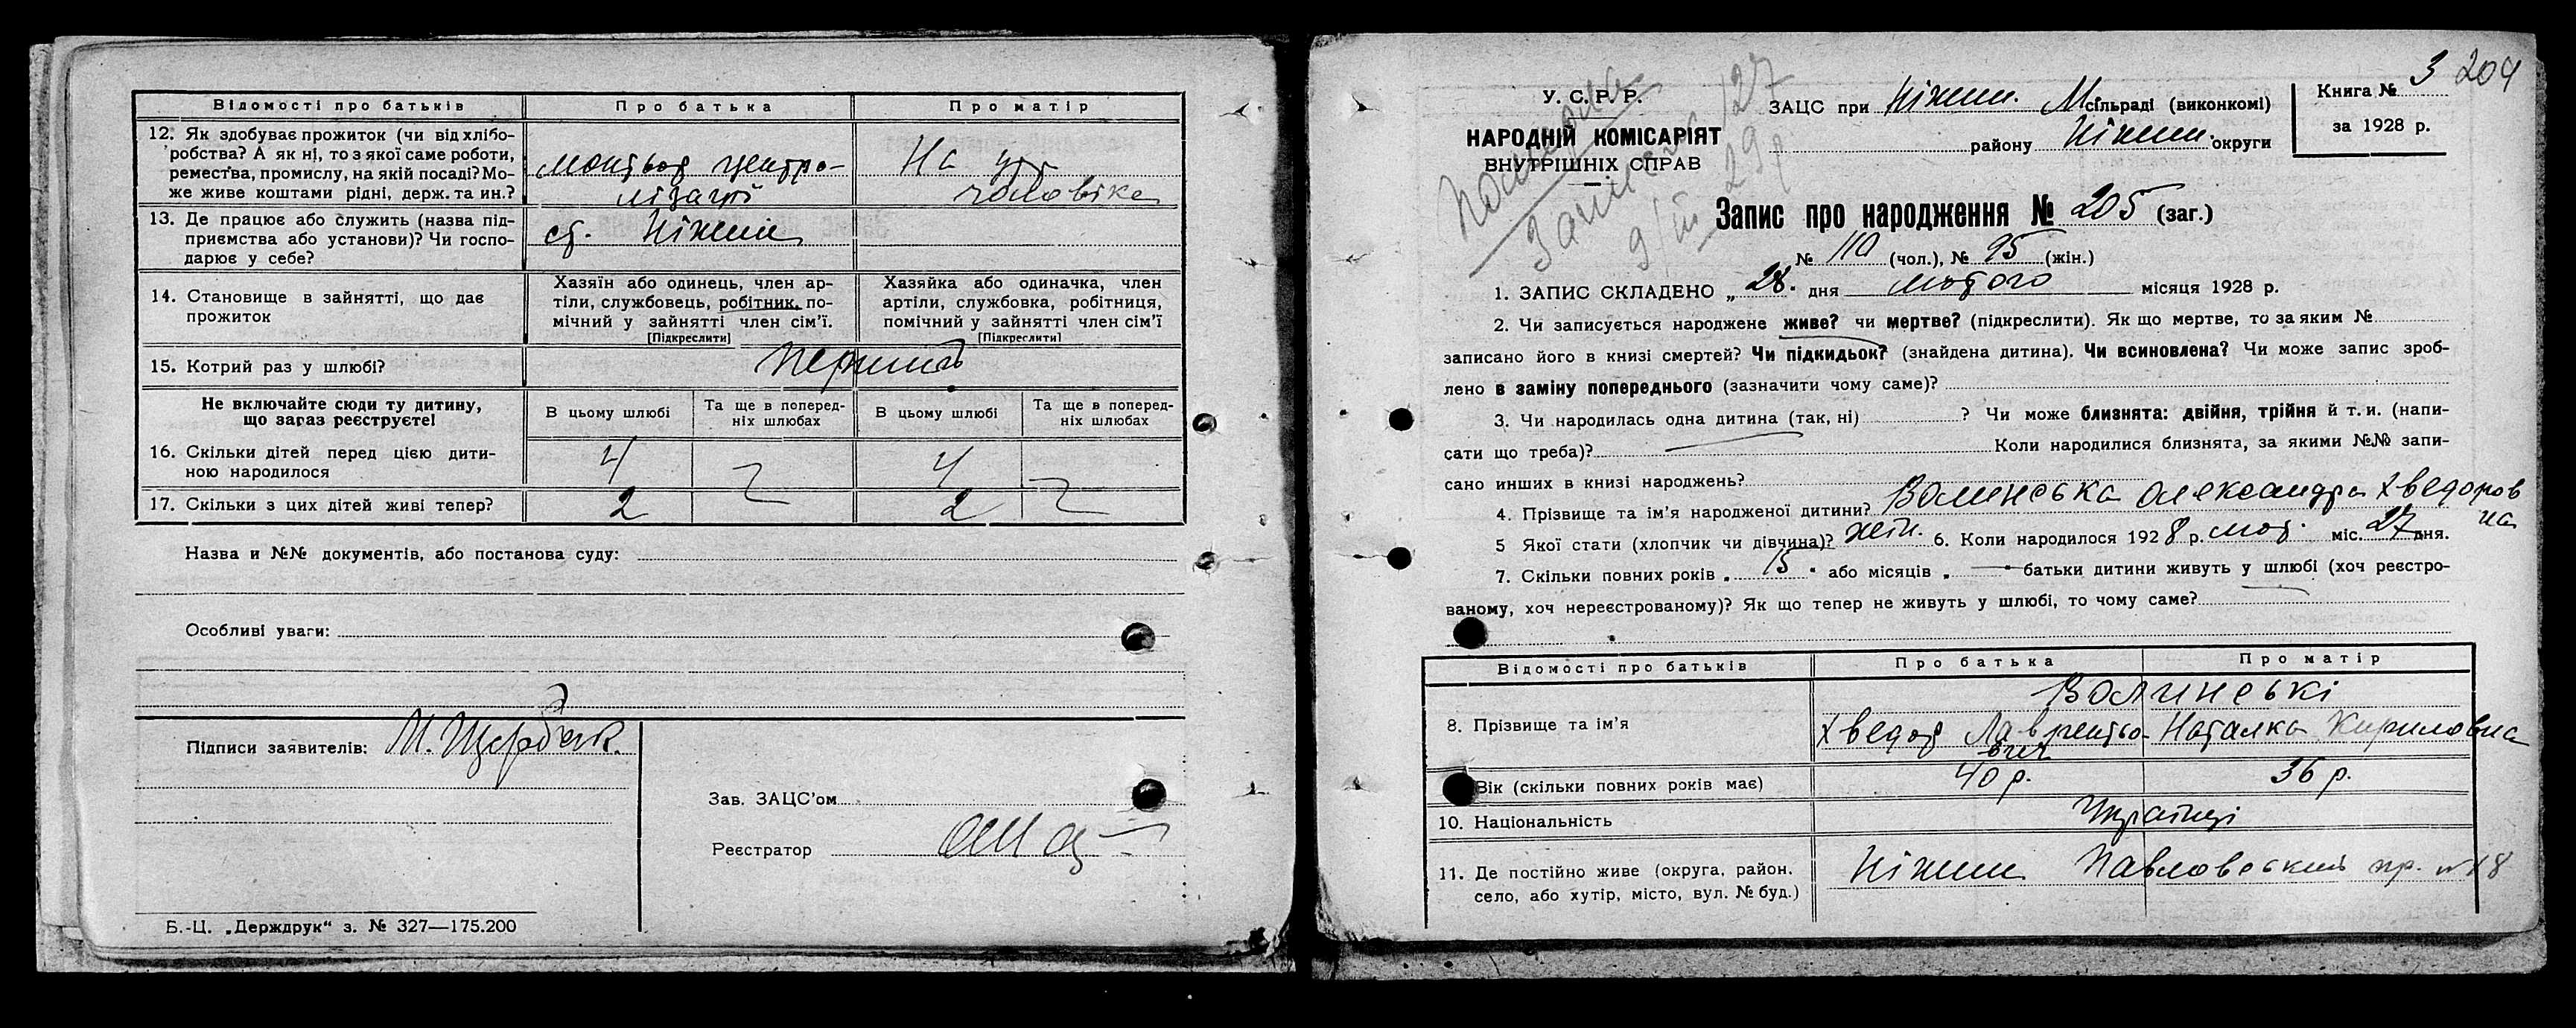 Відомості про батьків Про батька Про матір
12. Як здобуває прожиток (чи від хлібо-
робства? А як ні, то з якої саме роботи,
ремества, промислу, на якій посаді? Мо-
же живе коштами рідні, держ. та ин.?
монтьор центра-
лізації
На утр.
чоловіка
13. Де працює або служить (назва під-
приємства або установи)? Чи госпо-
дарює у себе?
ст. Ніжин
14. Становище в зайнятті, що дає
прожиток
Хазяїн або одинець, член ар-
тіли, службовець, робітник, по-
мічний у зайнятті член сім'ї.
[Підкреслити]
Хазяйка або одиначка, член
артіли, службовка, робітниця,
помічний у зайнятті член сім'ї
[Підкреслити]
15. Котрий раз у шлюбі? перший
Не включайте сюди ту дитину,
що зараз реєструєте!
В цьому шлюбі
Та ще в поперед-
ніх шлюбах
В цьому шлюбі
Та ще в поперед-
ніх шлюбах
16. Скільки дітей перед цією дити-
ною народилося
4 4
17. Скільки з цих дітей живі тепер? 2 2
Назва и №№ документів, або постанова суду:
Особливі уваги:
Підписи заявителів: М. Щербак
Зав. ЗАЦС'ом
Реєстратор
Б.-Ц. „Держдрук“ з. № 327—175.200
У. С. Р. Р.
НАРОДНІЙ КОМІСАРІЯТ
ВНУТРІШНІХ СПРАВ
127
9/III 29р
ЗАЦС при Ніжин. М сільраді (виконкомі)
району Ніжин. округи
Книга № 3 204
за 1928 р.
Запис про народження № 205 (заг.)
№ 110 (чол.), № 95 (жін.)
1. ЗАПИС СКЛАДЕНО „28. дня лютого місяця 1928 р.
2. Чи записується народжене живе? чи мертве? (підкреслити). Як що мертве, то за яким №
записано його в книзі смертей? Чи підкидьок? (знайдена дитина). Чи всиновлена? Чи може запис зроб-
лено в заміну попереднього (зазначити чому саме)?
3. Чи народилась одна дитина (так, ні) ? Чи може близнята: двійня, трійня й т. и. (напи-
сати що треба)? Коли народилися близнята, за якими №№ запи-
сано инших в книзі народжень?
4. Прізвище та ім'я народженої дитини? Волинська Олександра Хведоров
на
5 Якої стати (хлопчик чи дівчина)? жін. 6. Коли народилося 1928 р. лют. міс. 27 дня.
7. Скільки повних років „ 15 “ або місяців „ — “ батьки дитини живуть у шлюбі (хоч реєстро-
ваному, хоч нереєстрованому)? Як що тепер не живуть у шлюбі, то чому саме?
Відомості про батьків Про батька Про матір
Волинські
8. Прізвище та ім'я Хведор Лаврентьо- Наталка Кириловна
вич
Вік (скільки повних років має) 40 р. 36 р.
10. Національність Українці
11. Де постійно живе (округа, район,
село, або хутір, місто, вул. № буд.)
Ніжин Павловський пр. № 18